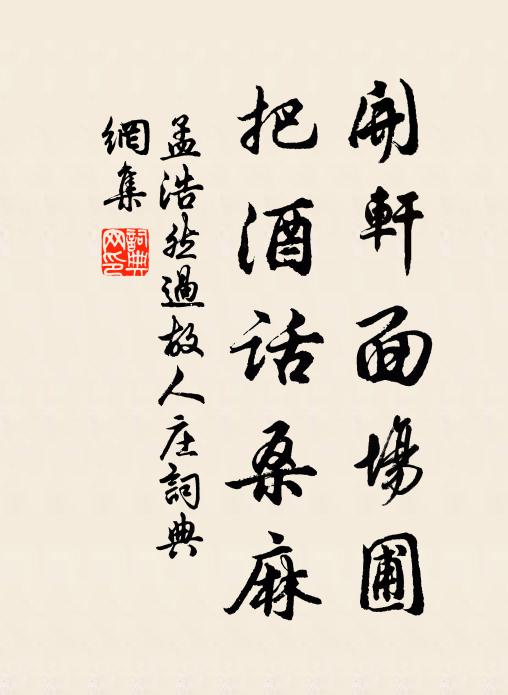 開軒面場圃
把酒話桑麻
孟浩然過故人庄詞典
網集
詞典网印